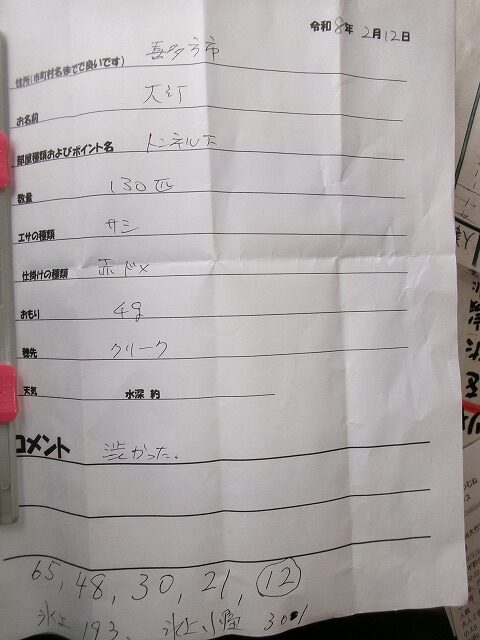 令和8年 2月12日
住所(市町村名までで良いです) 喜多方市
お名前
部屋種類およびポイント名 トンネル下
数量 130匹
エサの種類 サシ
仕掛けの種類 赤ドメ
おもり 4g
穂先 クリーク
天気 水深 約
コメント 渋かった。
65, 48, 30, 21, 12
氷上 193、 氷上小屋 301